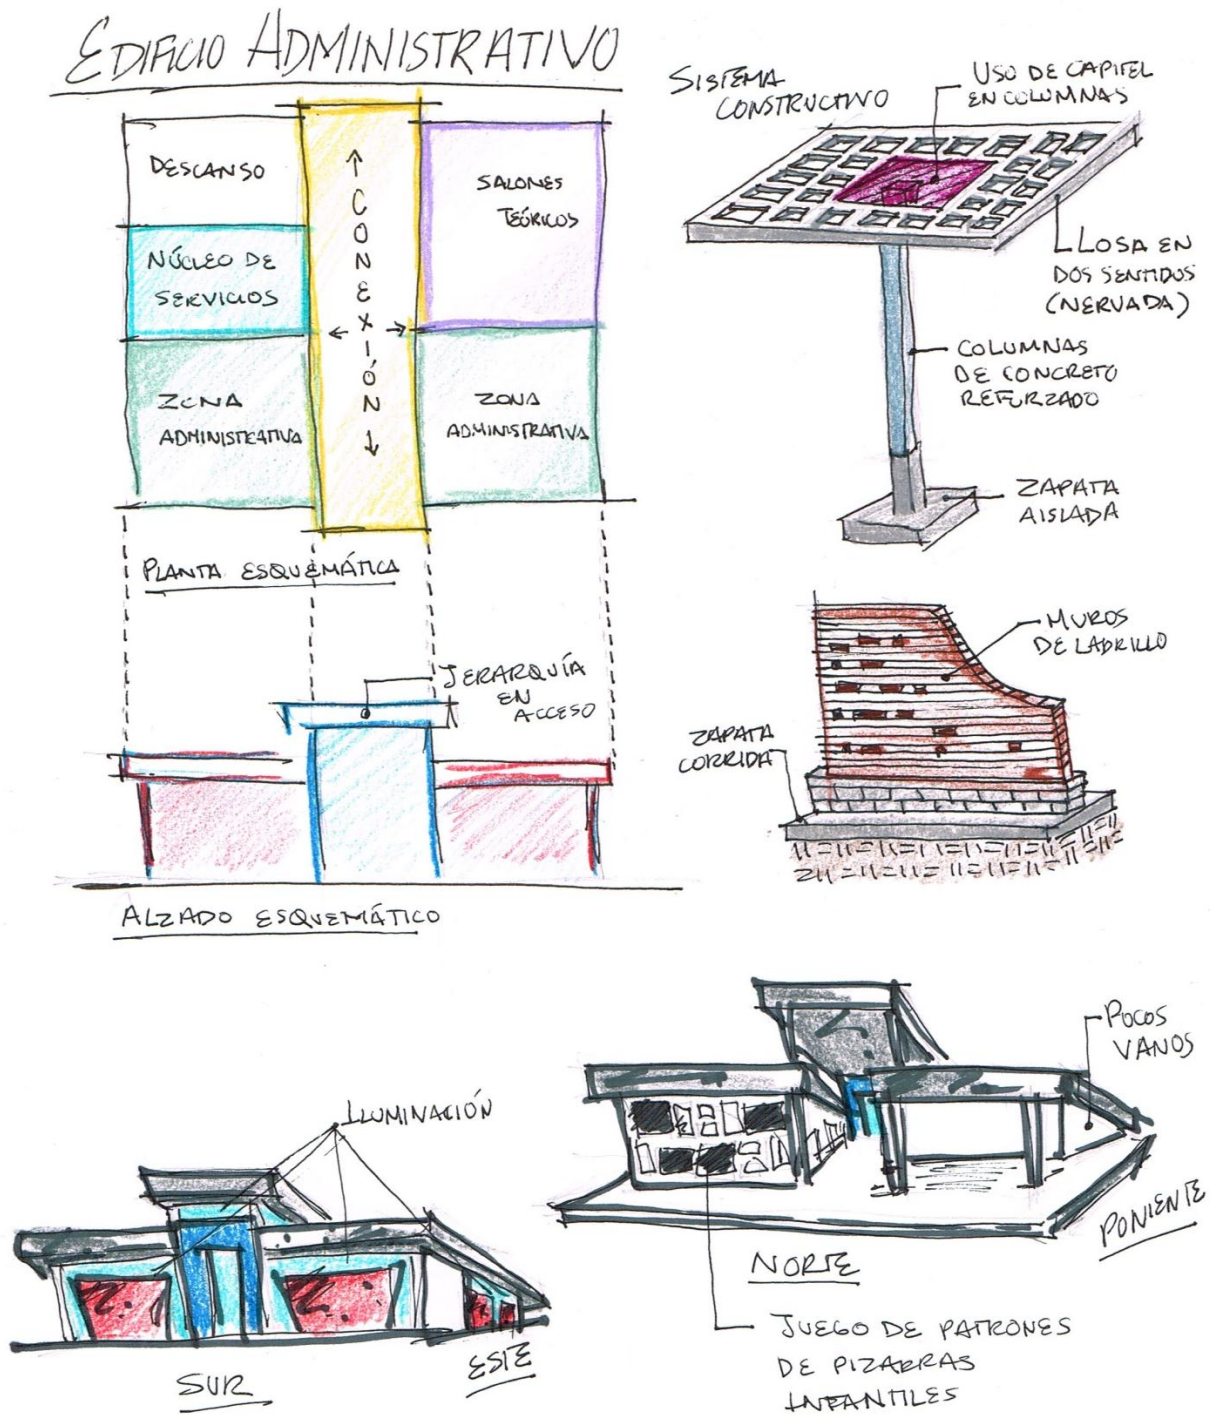 EDIFICIO ADMINISTRATIVO
DESCANSO
NÚCLEO DE
SERVICIOS
ZONA
ADMINISTRATIVA
CONEXIÓN
SALONES
TEÓRICOS
ZONA
ADMINISTRATIVA
PLANTA ESQUEMÁTICA
JERARQUÍA
EN
ACCESO
ALZADO ESQUEMÁTICO
SISTEMA
CONSTRUCTIVO
USO DE CAPITEL
EN COLUMNAS
LOSA EN
DOS SENTIDOS
(NERVADA)
COLUMNAS
DE CONCRETO
REFURZADO
ZAPATA
AISLADA
MUROS
DE LADRILLO
ZAPATA
CORRIDA
ILUMINACIÓN
SUR
ESTE
POCOS
VANOS
PONIENTE
NORTE
JUEGO DE PATRONES
DE PIZARRAS
INFANTILES